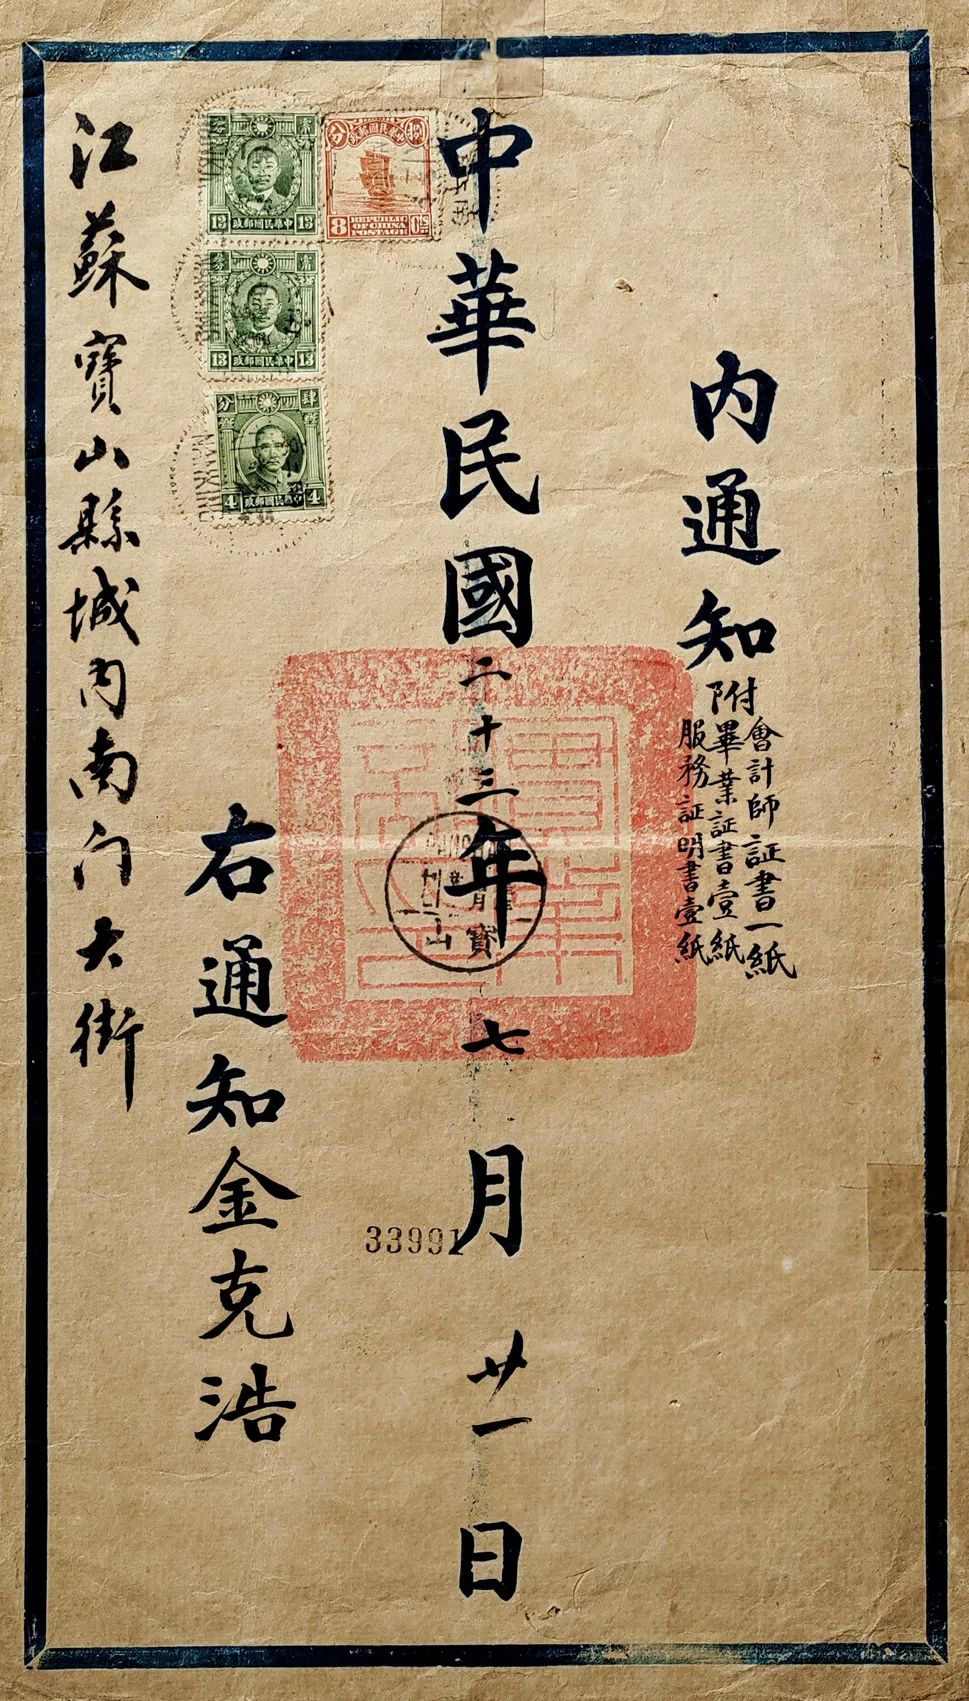 內通知
附
會計師証書一紙
畢業証書壹紙
服務証明書壹紙
中華民國二十三年七月廿一日
右通知金克浩
江蘇寶山縣城內南门大街
中華民國郵政
8
REPUBLIC
OF CHINA
POSTAGE
13
中華民國郵政
13
13
中華民國郵政
13
4
中華民國郵政
4
33991
寶山